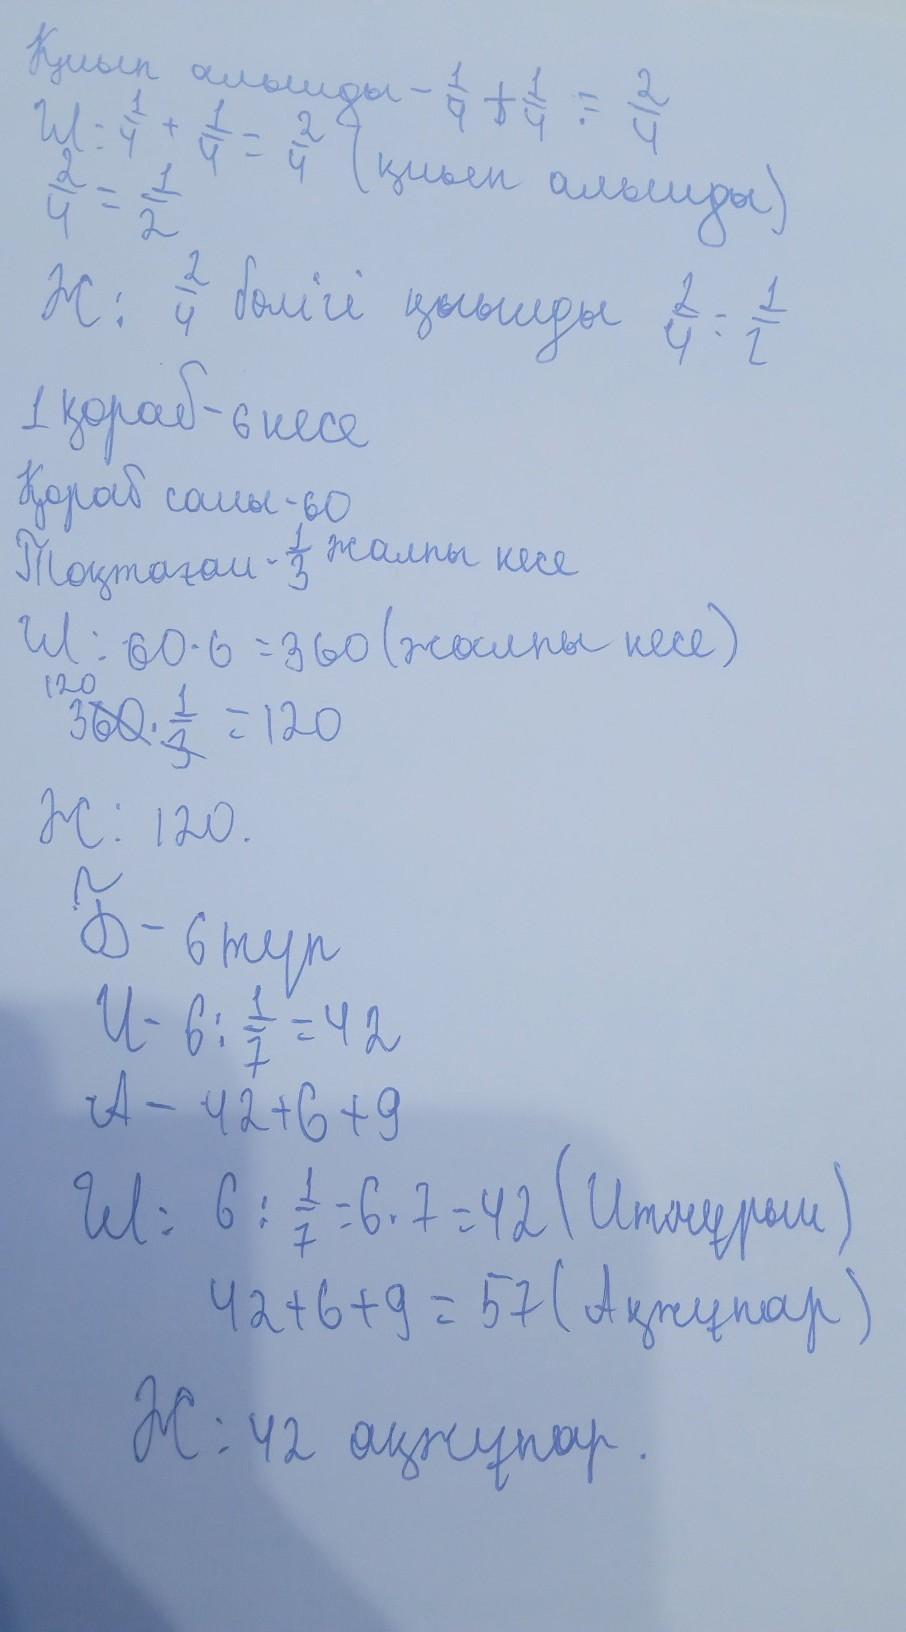 Қиып алынды - 1/4 + 1/4 = 2/4
Ш: 1/4 + 1/4 = 2/4 (қиып алынды)
2/4 = 1/2
Ж: 2/4 бөлігі қиылды 2/4 = 1/2
1 қорап - 6 кесе
Қорап саны - 60
Тоқтаған - 1/3 жалпы кесе
Ш: 60·6 = 360 (жалпы кесе)
120
360 · 1/3 = 120
Ж: 120.
Б - 6 түп
И - 6 : 1/7 = 42
А - 42+6+9
Ш: 6 : 1/7 = 6·7 = 42 (Итмұрын)
42+6+9 = 57 (Ақжұпар)
Ж: 42 ақжұпар.